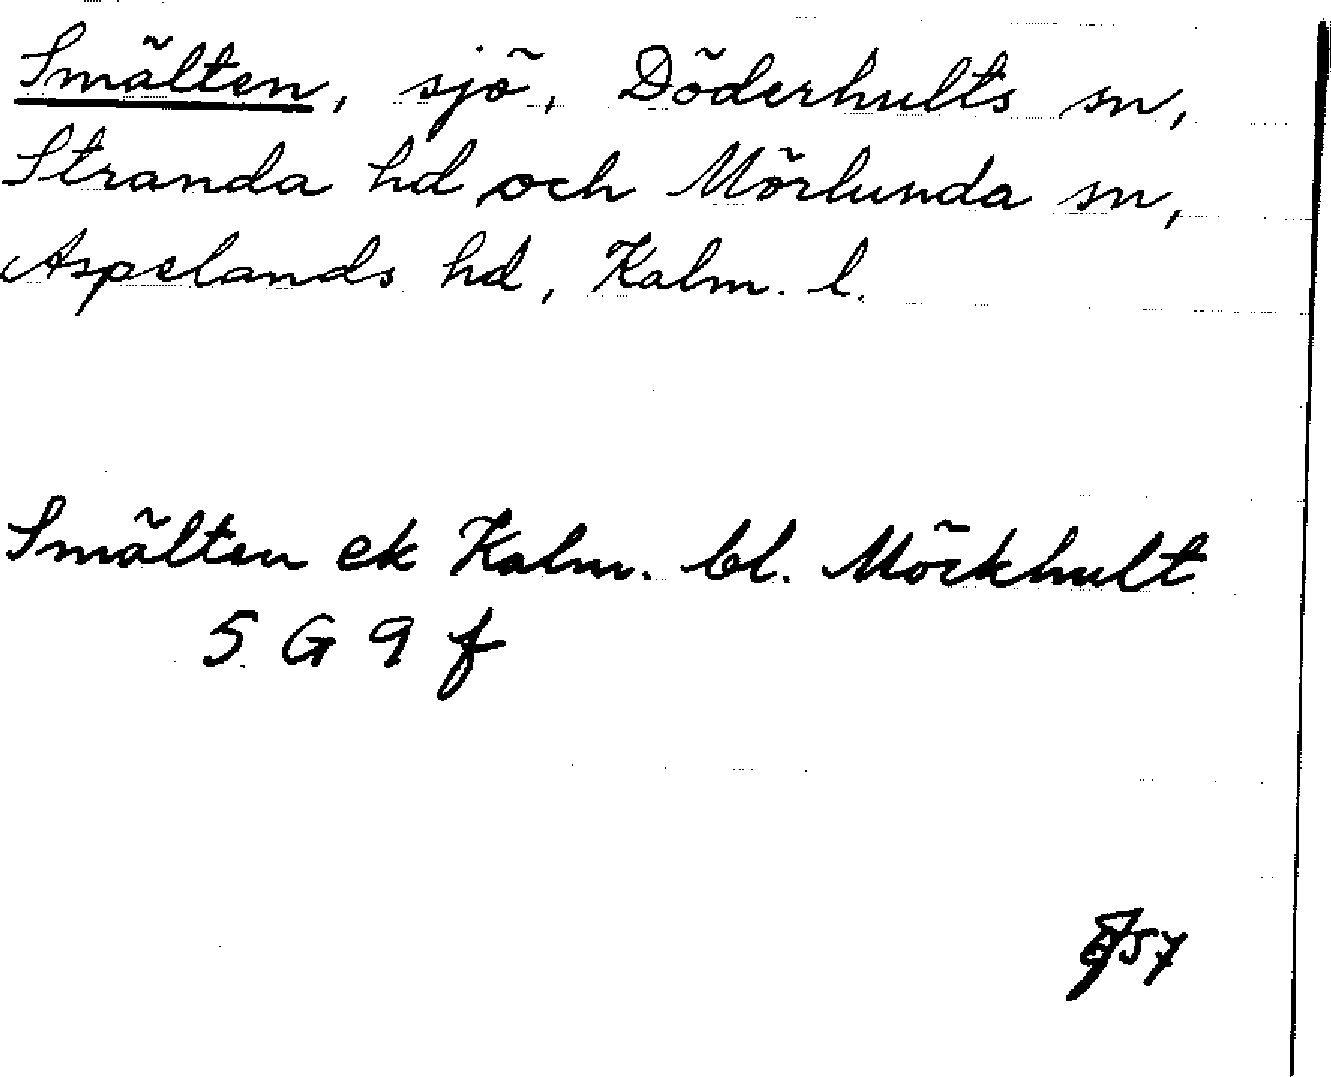 Smälten, sjö, Döderhults sn,
Stranda hd och Mörlunda sn,
Aspelands hd, Kalm. l.
Smälten ek Kalm. bl. Möckhult
5 G 9 f
57